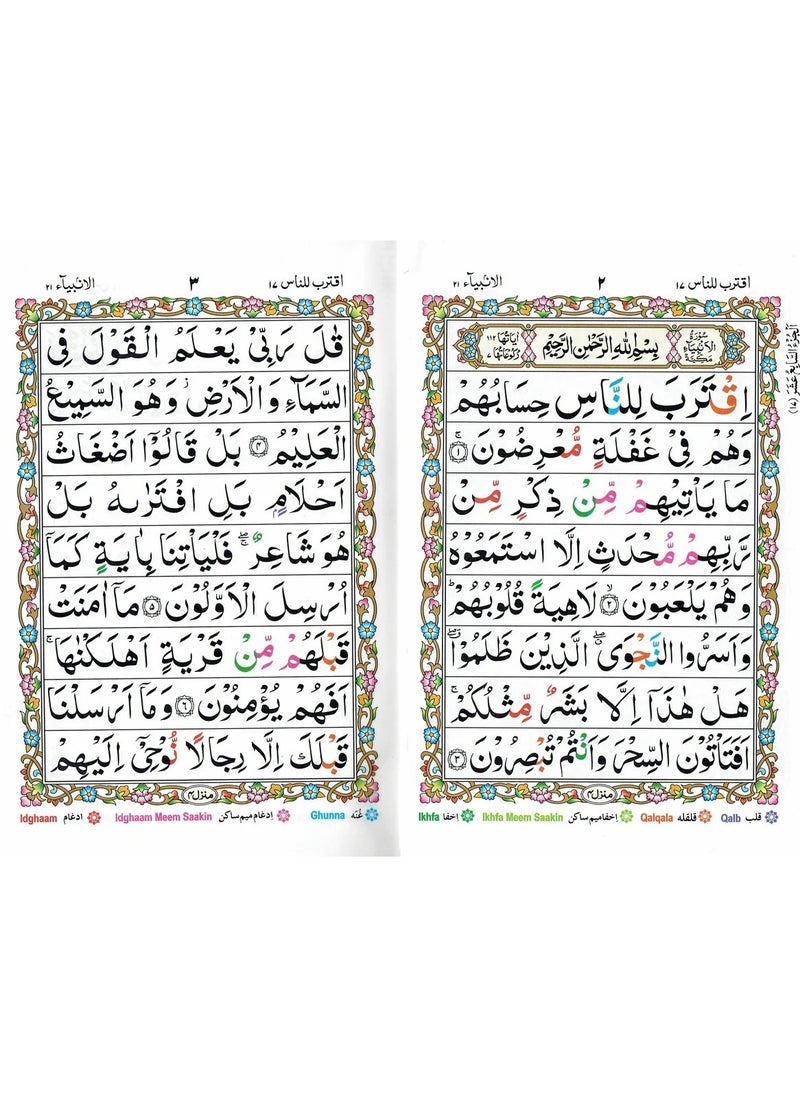 اقترب للناس ١٧
٢
الانبيآء ٢١
سُوْرَةُ الْاَنْبِيَآءِ مَكِّيَّةٌ
بِسْمِ اللّٰهِ الرَّحْمٰنِ الرَّحِيْمِ
اٰيَاتُهَا ١١٢ رُكُوْعَاتُهَا ٧
اِقْتَرَبَ لِلنَّاسِ حِسَابُهُمْ
وَهُمْ فِيْ غَفْلَةٍ مُّعْرِضُوْنَ ۚ ١
مَا يَاْتِيْهِمْ مِّنْ ذِكْرٍ مِّنْ
رَّبِّهِمْ مُّحْدَثٍ اِلَّا اسْتَمَعُوْهُ
وَهُمْ يَلْعَبُوْنَ ۙ ٢ لَاهِيَةً قُلُوْبُهُمْ ؕ
وَاَسَرُّوا النَّجْوَى ۖ الَّذِيْنَ ظَلَمُوْا ۖ
هَلْ هٰذَآ اِلَّا بَشَرٌ مِّثْلُكُمْ ۚ
اَفَتَاْتُوْنَ السِّحْرَ وَاَنْتُمْ تُبْصِرُوْنَ ٣
منزل ٤
اَلْجُزْءُ السَّابِعُ عَشَرَ (١٧)
قلب Qalb قلقله Qalqala اِخفا ميم ساكن Ikhfa Meem Saakin اِخفا Ikhfa
اقترب للناس ١٧
٣
الانبيآء ٢١
قٰلَ رَبِّيْ يَعْلَمُ الْقَوْلَ فِي
السَّمَآءِ وَالْاَرْضِ ۫ وَهُوَ السَّمِيْعُ
الْعَلِيْمُ ٤ بَلْ قَالُوْٓا اَضْغَاثُ
اَحْلَامٍۭ بَلِ افْتَرٰىهُ بَلْ
هُوَ شَاعِرٌ ۖۚ فَلْيَاْتِنَا بِاٰيَةٍ كَمَآ
اُرْسِلَ الْاَوَّلُوْنَ ٥ مَآ اٰمَنَتْ
قَبْلَهُمْ مِّنْ قَرْيَةٍ اَهْلَكْنٰهَا ۚ
اَفَهُمْ يُؤْمِنُوْنَ ٦ وَمَآ اَرْسَلْنَا
قَبْلَكَ اِلَّا رِجَالًا نُّوْحِيْٓ اِلَيْهِمْ
منزل ٤
غُنّه Ghunna اِدغام ميم ساكن Idghaam Meem Saakin ادغام Idghaam